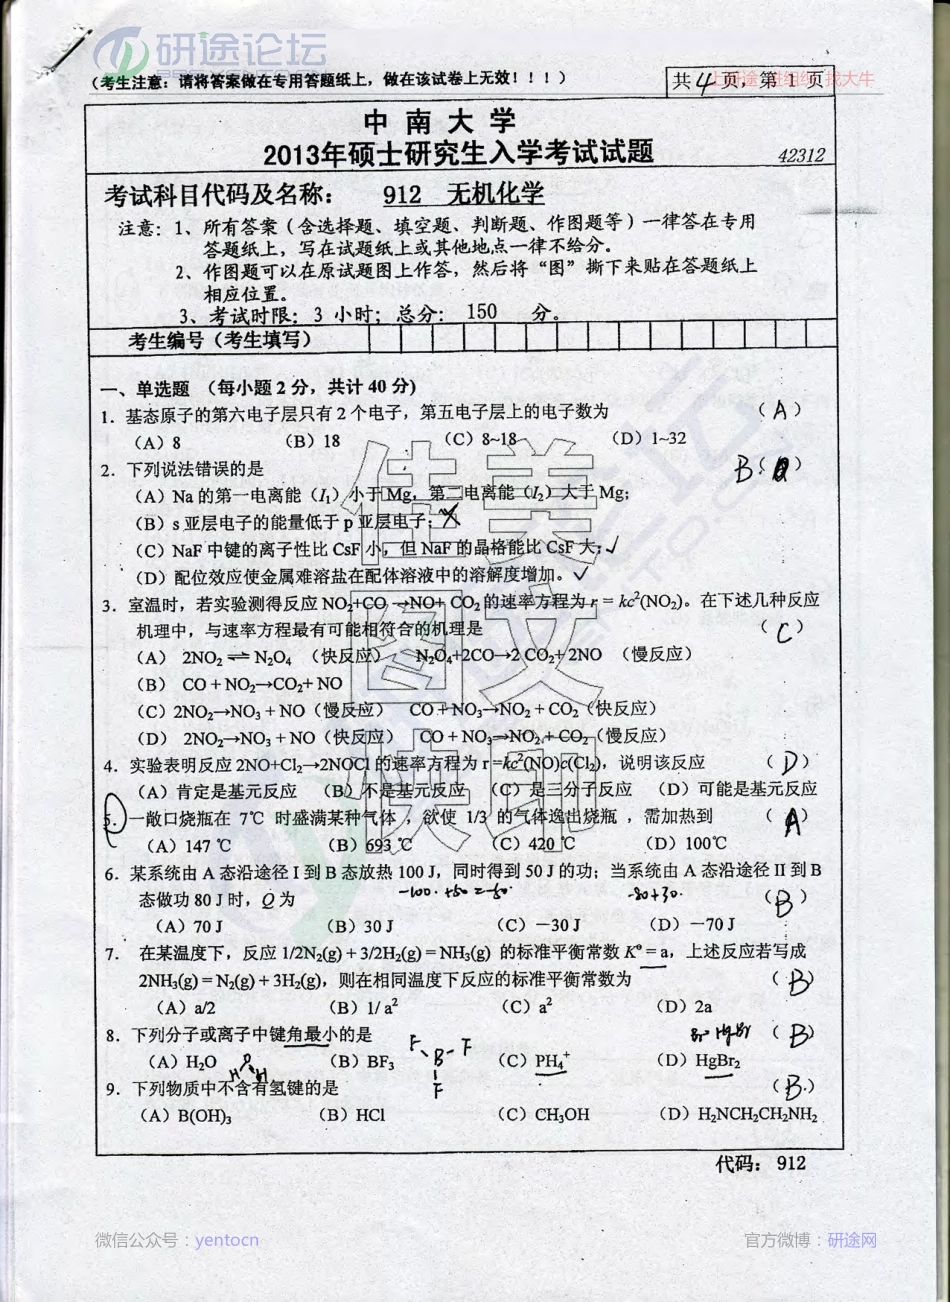 研途论坛
(考生注意：请将答案做在专用答题纸上，做在该试卷上无效！！！)
共 4 页，第 1 页
上研途 进组织 找大牛
中南大学
2013年硕士研究生入学考试试题
42312
考试科目代码及名称： 912 无机化学
注意：1、所有答案（含选择题、填空题、判断题、作图题等）一律答在专用
答题纸上，写在试题纸上或其他地点一律不给分。
2、作图题可以在原试题图上作答，然后将“图”撕下来贴在答题纸上
相应位置。
3、考试时限：3 小时；总分： 150 分。
考生编号（考生填写）
一、单选题 （每小题 2 分，共计 40 分）
1．基态原子的第六电子层只有 2 个电子，第五电子层上的电子数为 （ A ）
（A）8 （B）18 （C）8~18 （D）1~32
2．下列说法错误的是 B（ ）
（A）Na 的第一电离能（I₁）小于 Mg，第二电离能（I₂）大于 Mg;
（B）s 亚层电子的能量低于 p 亚层电子; ×
（C）NaF 中键的离子性比 CsF 小，但 NaF 的晶格能比 CsF 大; √
（D）配位效应使金属难溶盐在配体溶液中的溶解度增加。√
3．室温时，若实验测得反应 NO₂+CO →NO+ CO₂ 的速率方程为 r = kc²(NO₂)。在下述几种反应
机理中，与速率方程最有可能相符合的机理是 （ C ）
（A） 2NO₂ ⇌ N₂O₄ （快反应） N₂O₄+2CO→2 CO₂+ 2NO （慢反应）
（B） CO + NO₂→CO₂+ NO
（C）2NO₂→NO₃ + NO（慢反应） CO + NO₃→NO₂ + CO₂（快反应）
（D） 2NO₂→NO₃ + NO（快反应） CO + NO₃→NO₂ + CO₂（慢反应）
4．实验表明反应 2NO+Cl₂→2NOCl 的速率方程为 r =kc²(NO)c(Cl₂)，说明该反应 （ D ）
（A）肯定是基元反应 （B）不是基元反应 （C）是三分子反应 （D）可能是基元反应
5．一敞口烧瓶在 7℃ 时盛满某种气体，欲使 1/3 的气体逸出烧瓶，需加热到 （ A ）
（A）147 ℃ （B）693 ℃ （C）420 ℃ （D）100℃
6．某系统由 A 态沿途径 I 到 B 态放热 100 J，同时得到 50 J 的功；当系统由 A 态沿途径 II 到 B
态做功 80 J 时，Q 为 -100+50=-50 -80+30 （ B ）
（A）70 J （B）30 J （C）—30 J （D）—70 J
7． 在某温度下，反应 1/2N₂(g) + 3/2H₂(g) = NH₃(g) 的标准平衡常数 K° = a，上述反应若写成
2NH₃(g) = N₂(g) + 3H₂(g)，则在相同温度下反应的标准平衡常数为 （ B ）
（A）a/2 （B）1/ a² （C）a² （D）2a
8．下列分子或离子中键角最小的是 Br-Hg-Br （ B ）
（A）H₂O （B）BF₃ （C）PH₄⁺ （D）HgBr₂
9．下列物质中不含有氢键的是 （ B ）
（A）B(OH)₃ （B）HCl （C）CH₃OH （D）H₂NCH₂CH₂NH₂
佳美
图文
快印
代码： 912
微信公众号：yentocn
官方微博：研途网